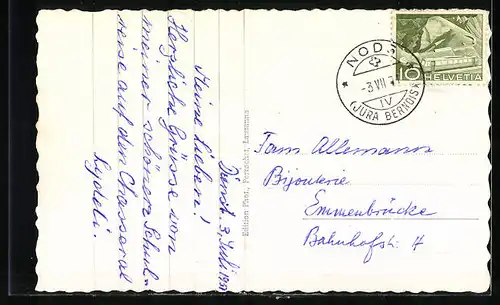 Dienst. 3. Juli 1951
Meine Lieben!
Herzliche Grüsse von
meiner schönen Schul-
reise auf den Chasseral
Lydeli.
Edition Phot. Perrochet, Lausanne
NODS
-3.VII
IV
(JURA BERNOIS)
10 HELVETIA
Fam. Allemann
Bijouterie
Emmenbrücke
Bahnhofst.